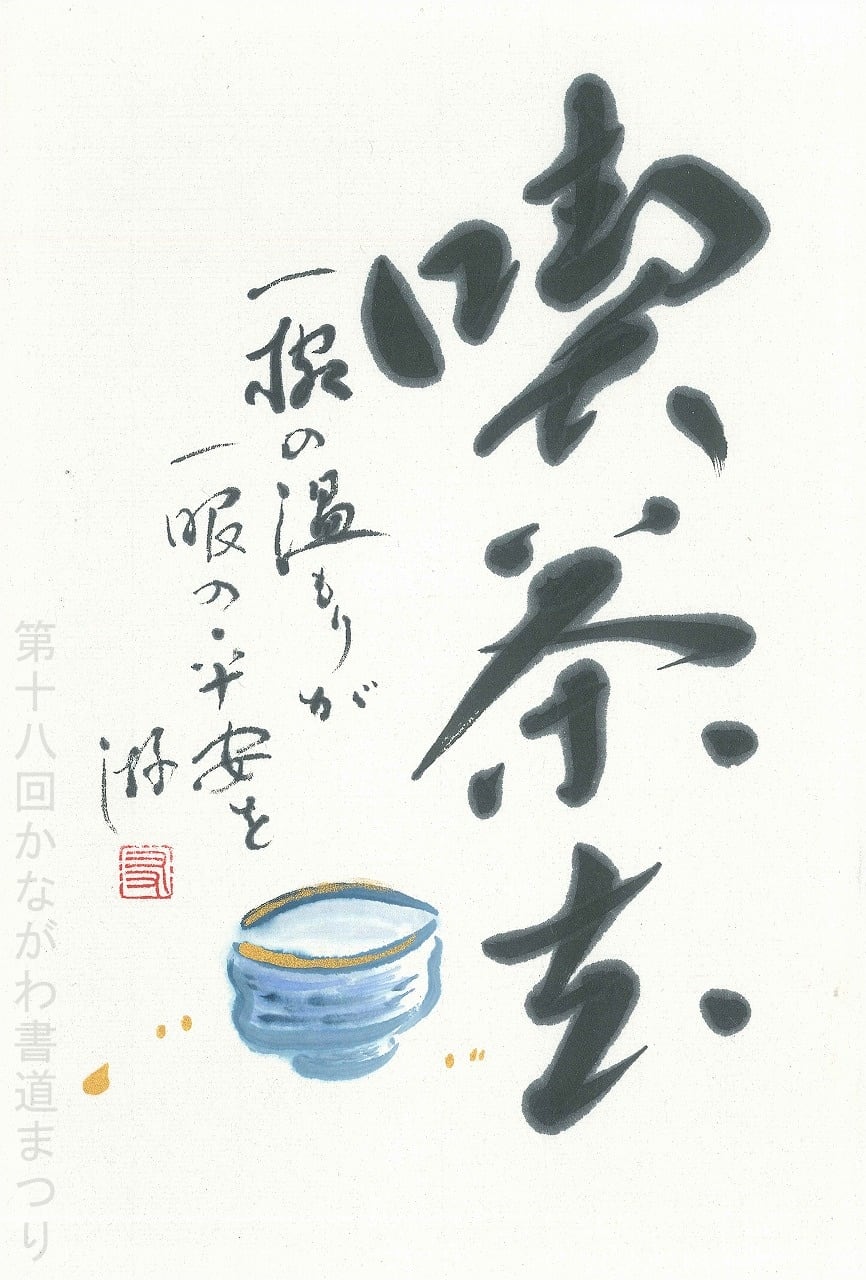 喫茶去
一椀の温もりが
一服の平安を
游
第十八回かながわ書道まつり